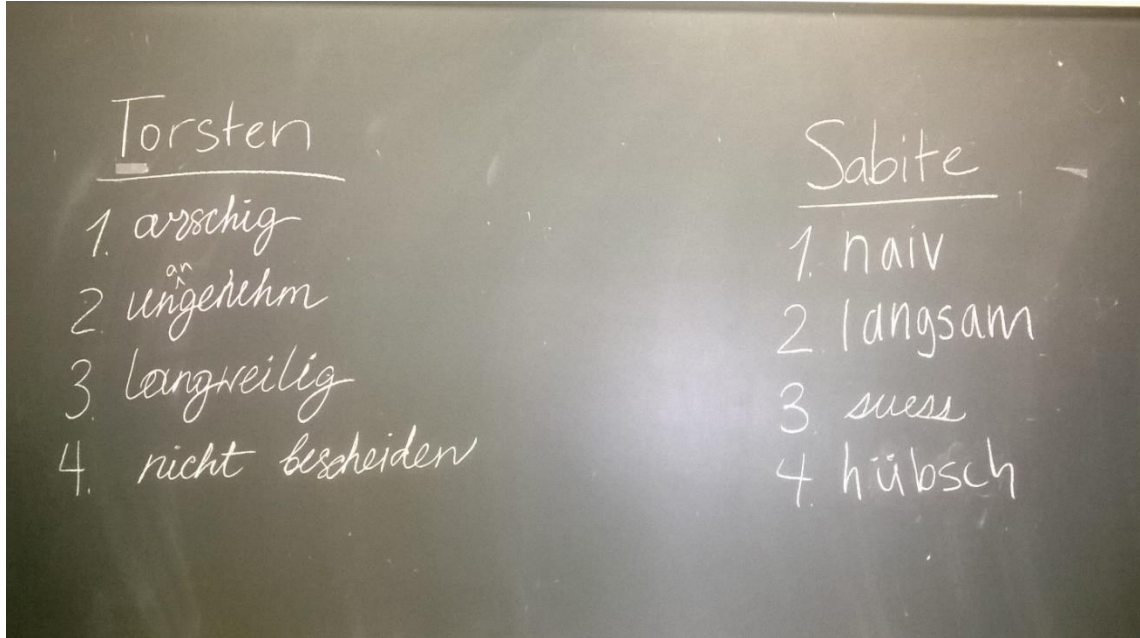 Torsten
1. arschig
2. unangenehm
3. langweilig
4. nicht bescheiden
Sabite
1. naiv
2 langsam
3. suess
4. hübsch